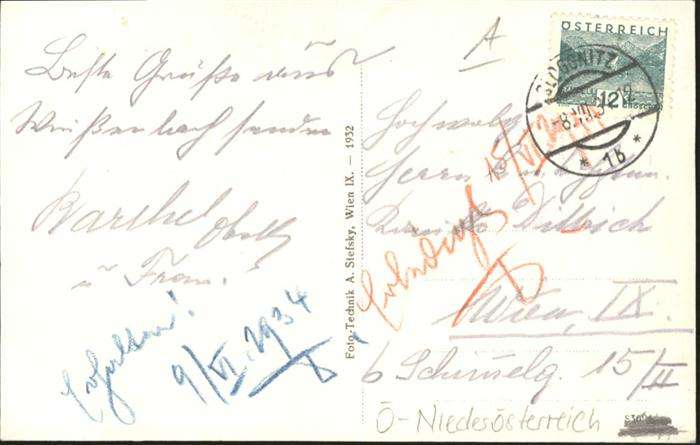 Beste Grüße aus
Weißenbach senden
Barthel
u Frau.
Erhalten!
9/VI. 1934
Foto-Technik A. Stefsky, Wien IX. — 1932
A
ÖSTERREICH
12
GROSCHEN
GLOGGNITZ
* 1b *
Hochwohlg
Herrn
Dittrich
Wien, IX.
15/II
Ö-Niederösterreich